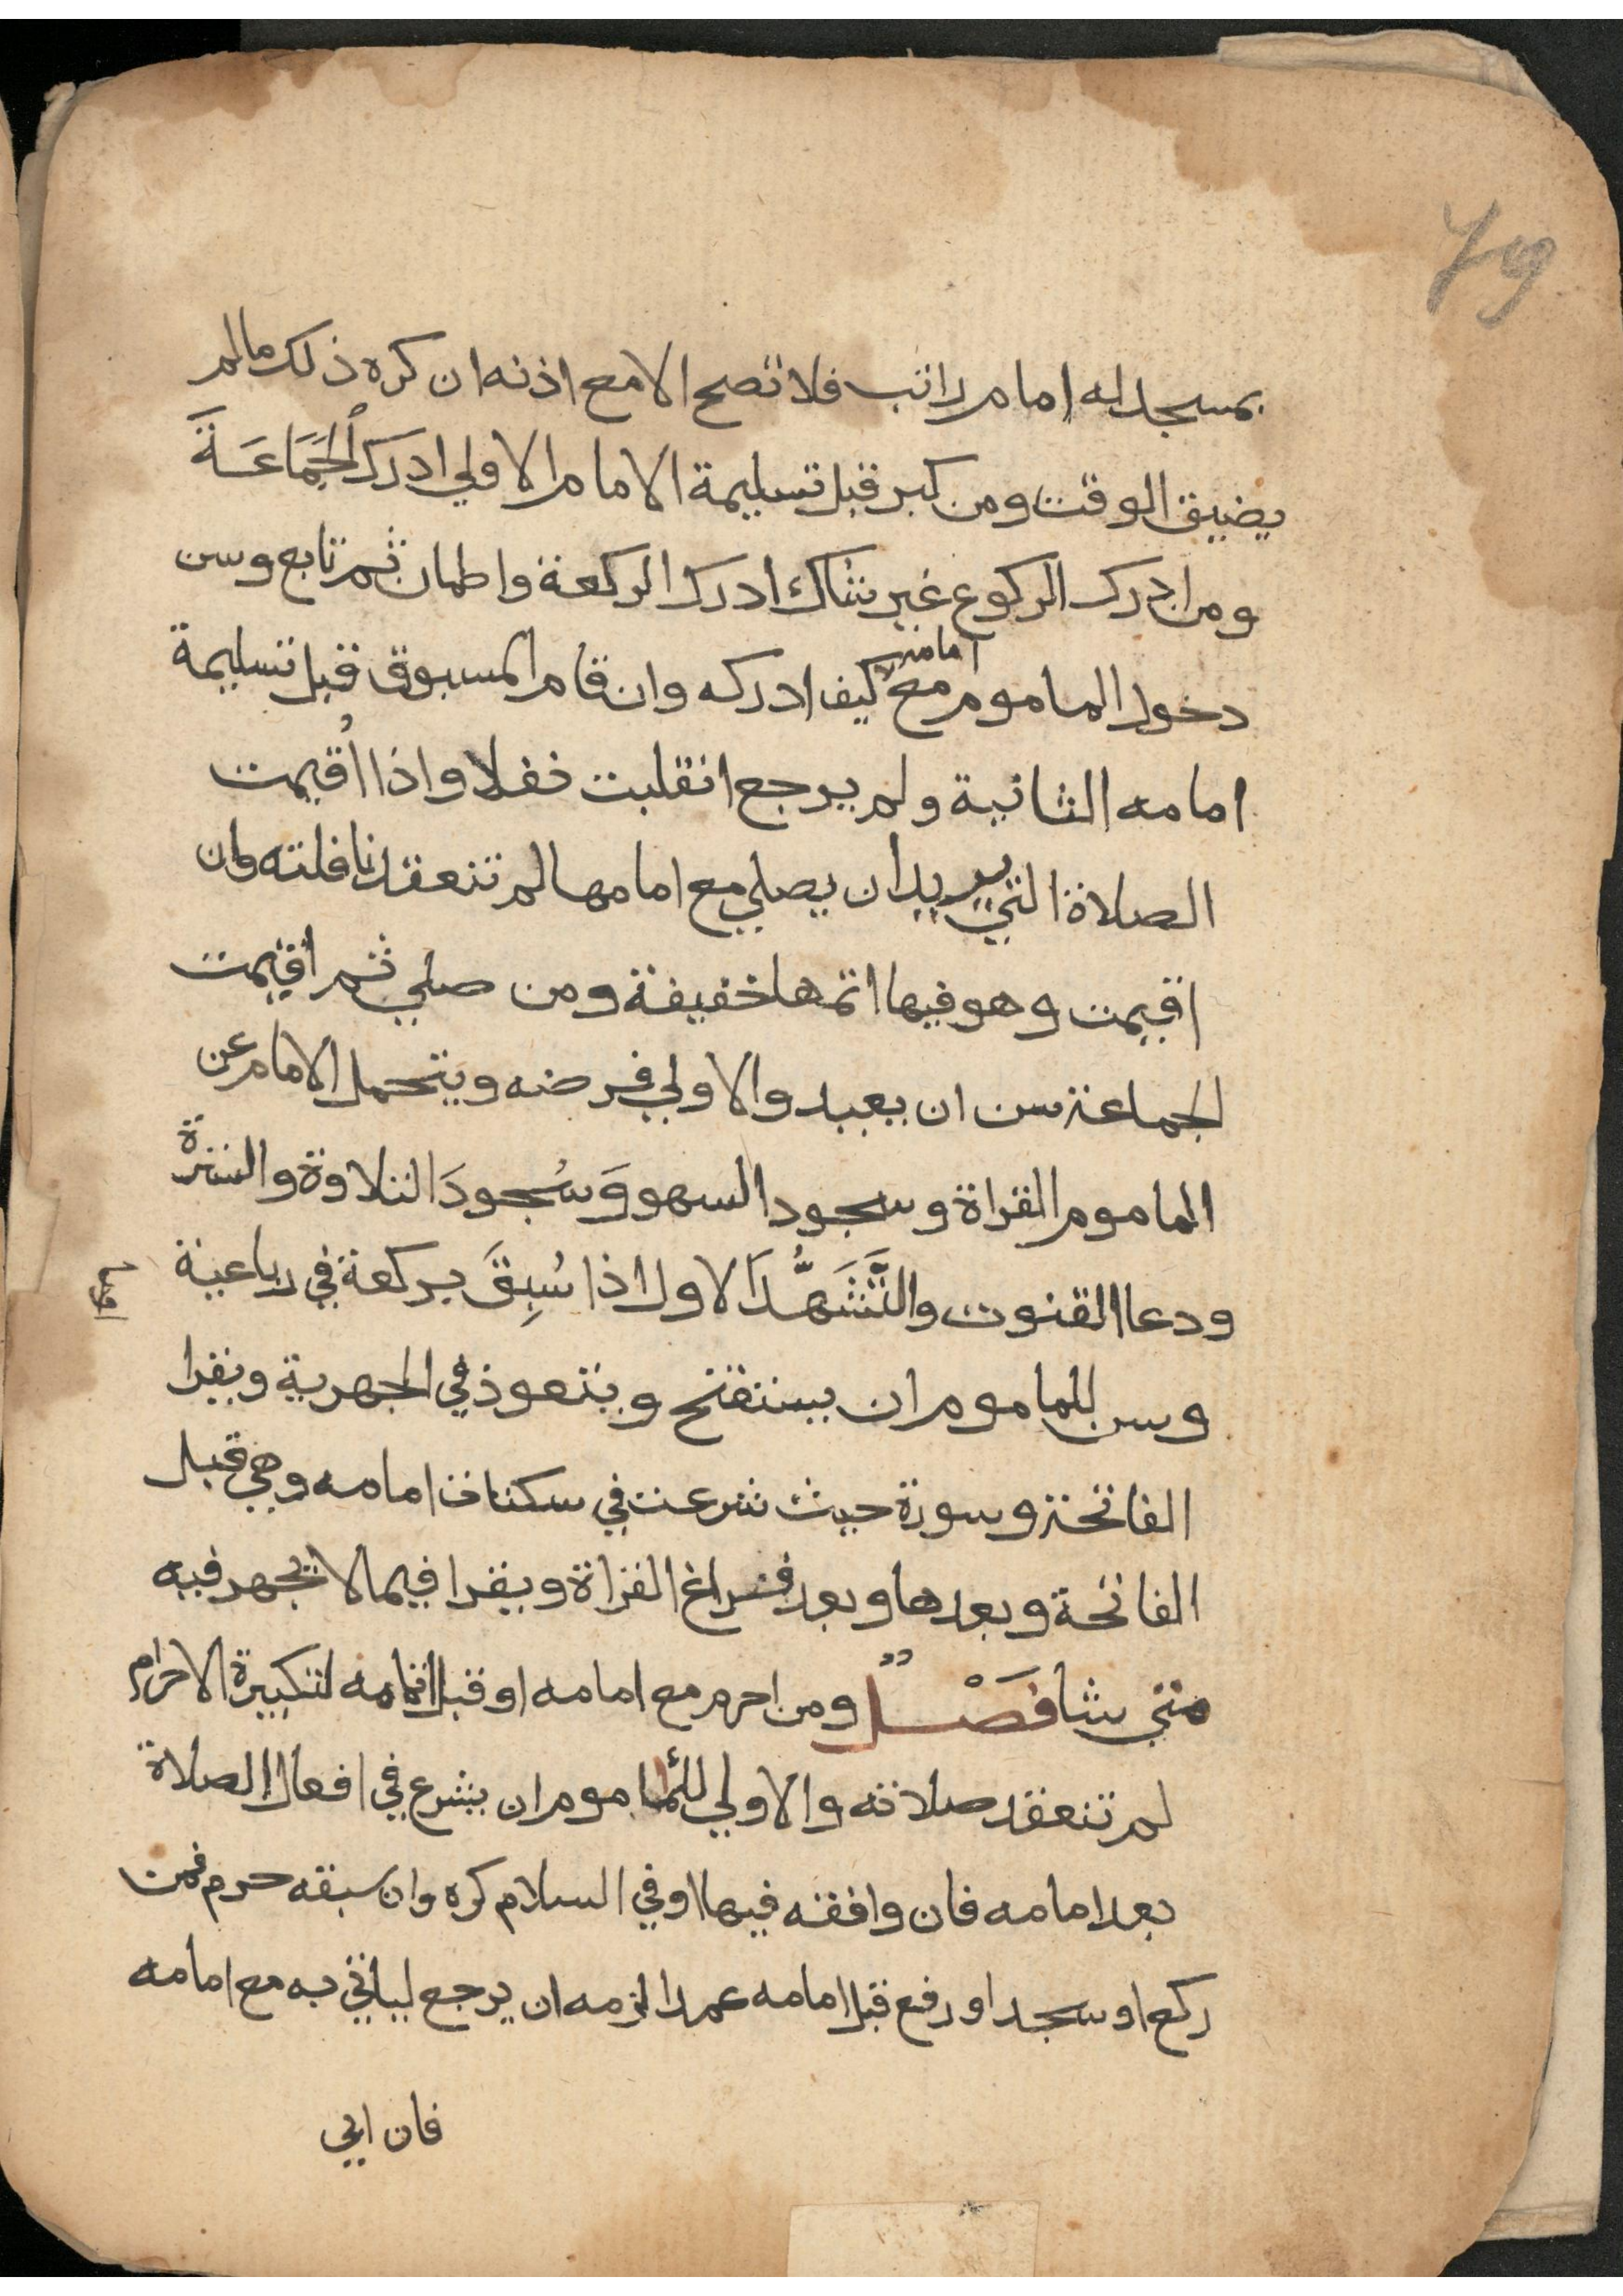 بمسجد له امام راتب فلا تصح الا مع اذنه ان كره ذلك ما لم
يضيق الوقت ومن كبر قبل تسليمة الامام الاولي ادرك الجَمَاعَةَ
ومن ادرك الركوع غير شاك ادرك الركعة واطمان ثم تابع وسن
دخول الماموم مع امامه كيف ادركه وان قام المسبوق قبل تسليمة
امامه الثانية ولم يرجع انقلبت نفلا واذا أُقيمت
الصلاة التي يريد ان يصلي مع امامها لم تنعقد نافلته وان
اقيمت وهو فيها اتمها خفيفة ومن صلي ثم اقيمت
الجماعة سن ان يعيد والاولي فرضه ويتحمل الامام عن
الماموم القراة وسجود السهو وَسُجودَ التلاوة والسترة
ودعا القنوت والتَّشَهُّدَ الاول اذا سُبِقَ بركعة في رباعية
وسن للماموم ان يستفتح ويتعوذ في الجهرية ويقرا
الفاتحة وسورة حيث شرعت في سكتات امامه وهي قبل
الفاتحة وبعدها وبعد فراغ القراة ويقرا فيما لا يجهر فيه
متي شا فَصْلٌ ومن احرم مع امامه او قبل اتمامه لتكبيرة الاحرام
لم تنعقد صلاته والاولي للمأموم ان يشرع في افعال الصلاة
بعد امامه فان وافقه فيها او في السلام كره وان سبقه حرم فمن
ركع او سجد او رفع قبل امامه عمدا لزمه ان يرجع لياتي به مع امامه
فان ابي